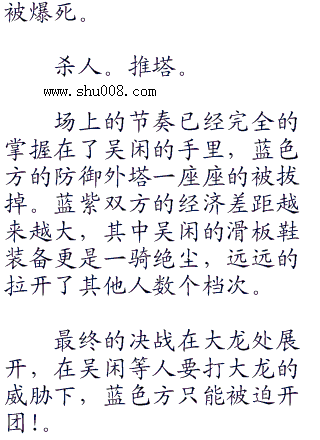 被爆死。
杀人。推塔。
www.shu008.com
场上的节奏已经完全的
掌握在了吴闲的手里，蓝色
方的防御外塔一座座的被拔
掉。蓝紫双方的经济差距越
来越大，其中吴闲的滑板鞋
装备更是一骑绝尘，远远的
拉开了其他人数个档次。
最终的决战在大龙处展
开，在吴闲等人要打大龙的
威胁下，蓝色方只能被迫开
团!。